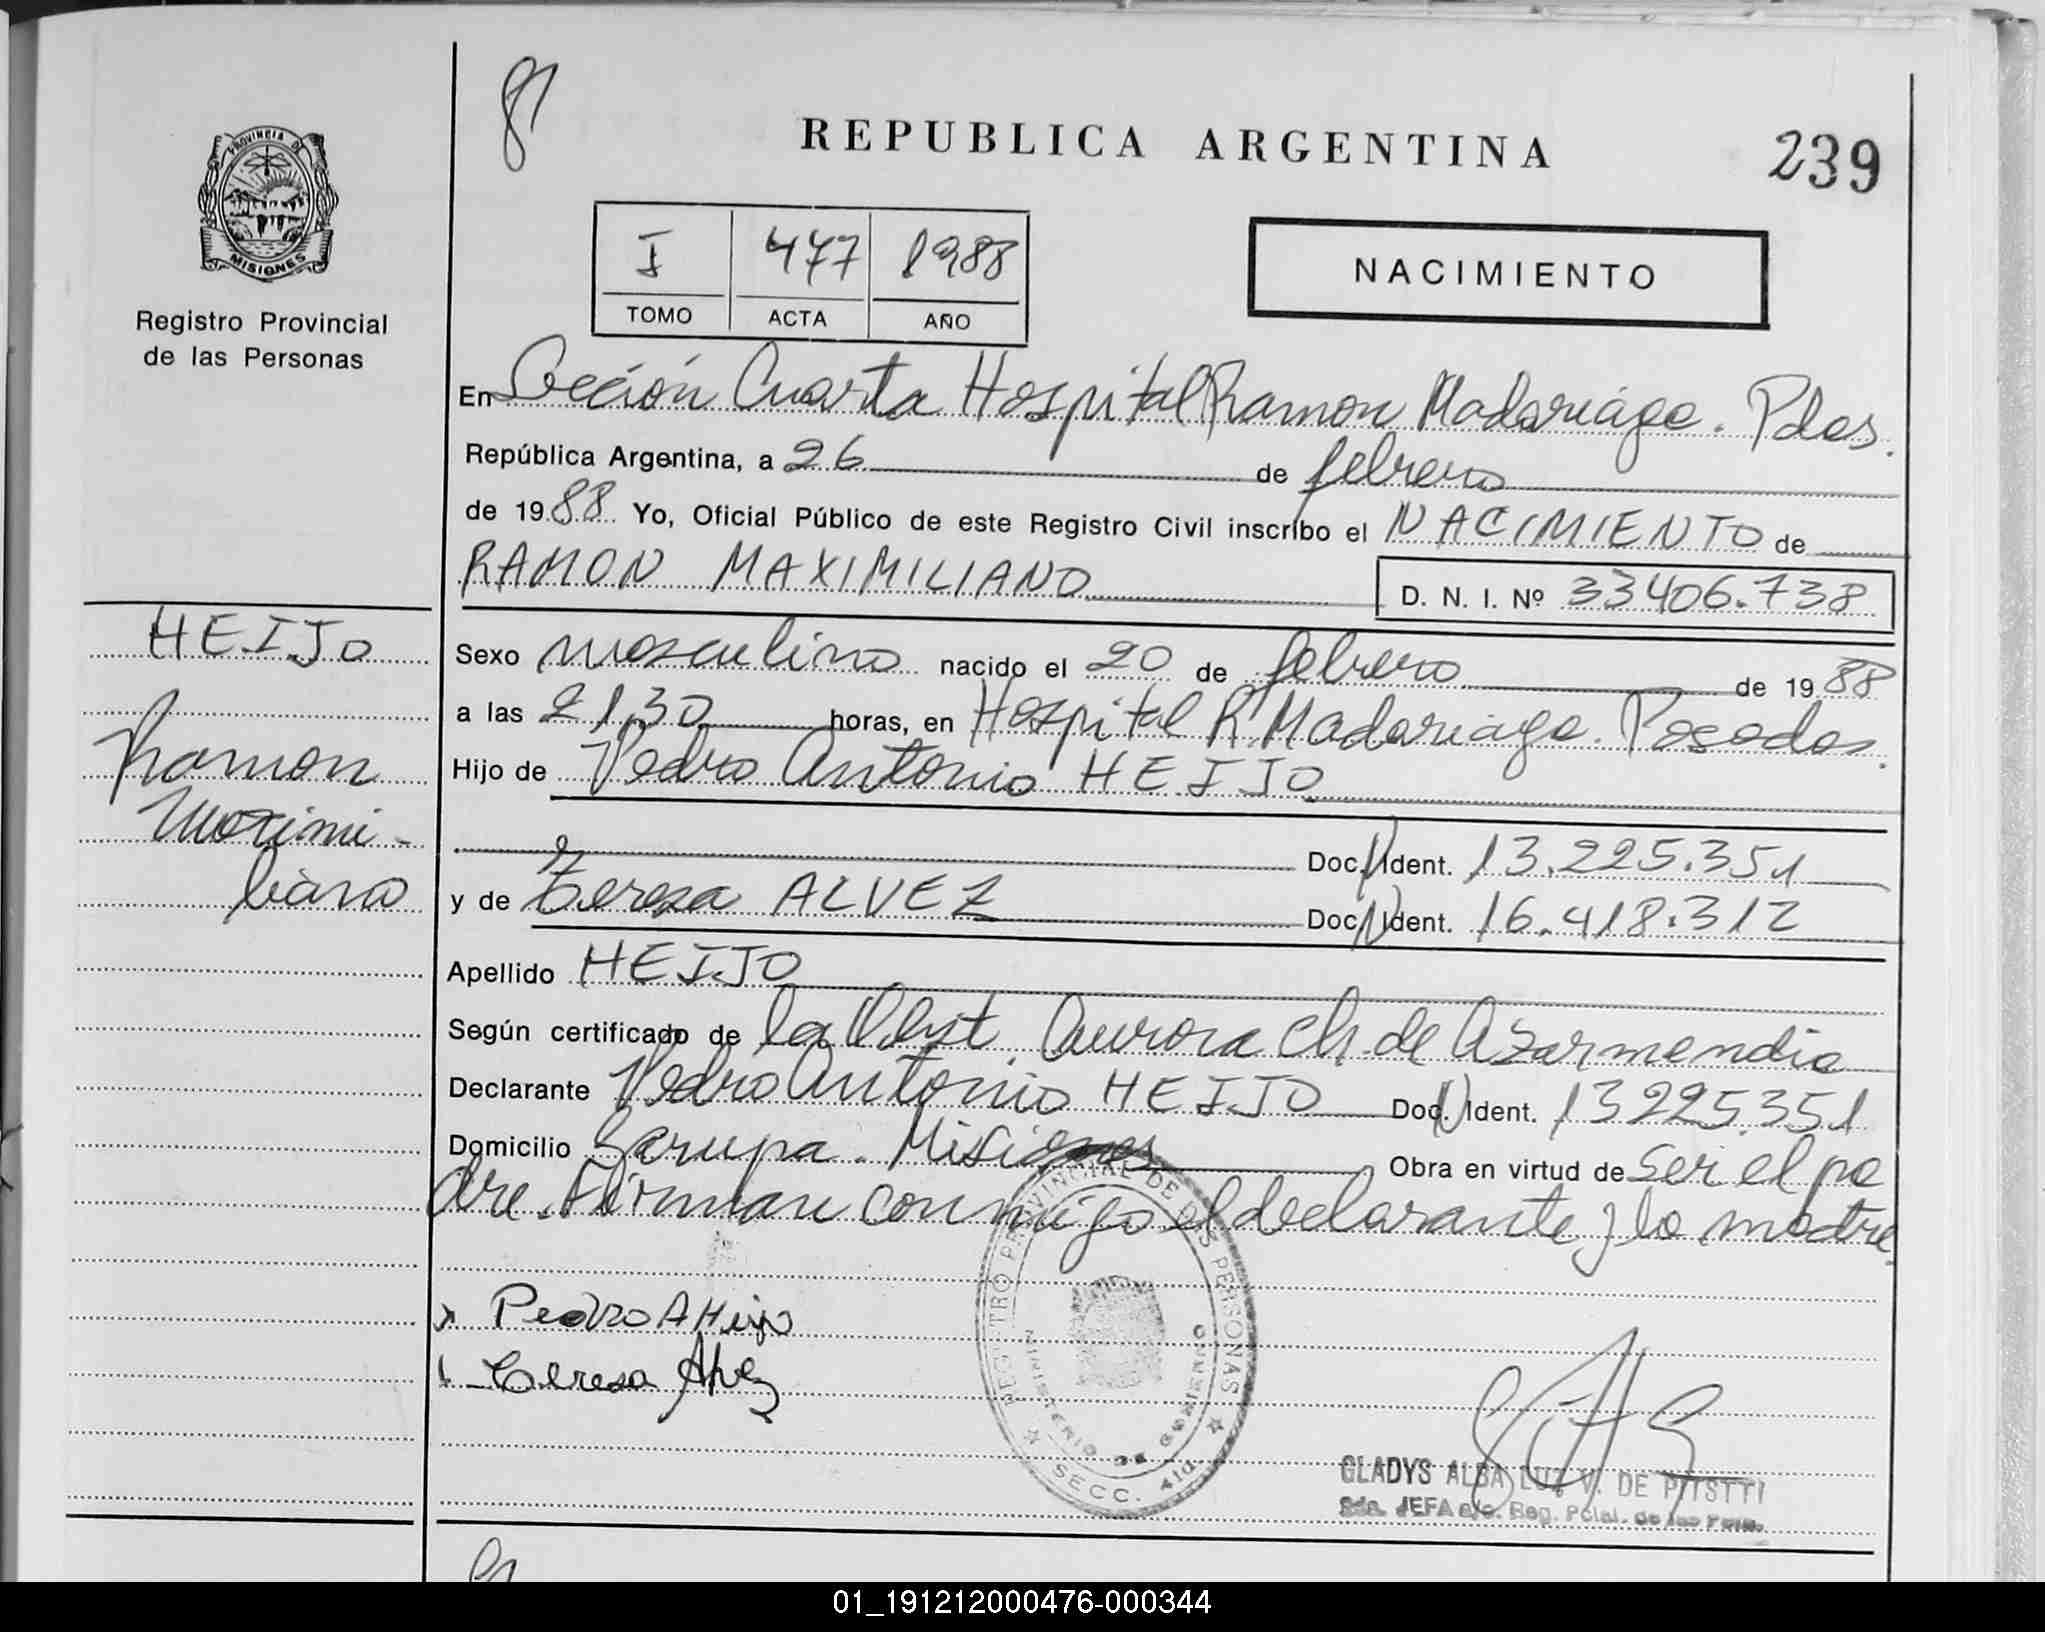 REPUBLICA ARGENTINA
239
PROVINCIA DE
MISIONES
Registro Provincial
de las Personas
I 477 1988
TOMO ACTA AÑO
NACIMIENTO
En Sección Cuarta Hospital Ramon Madariaga. Pdas.
República Argentina, a 26 de febrero
de 1988 Yo, Oficial Público de este Registro Civil inscribo el NACIMIENTO de
RAMON MAXIMILIANO D. N. I. Nº 33406.738
HEIJO
Ramon
Maximi-
liano
Sexo masculino nacido el 20 de febrero de 1988
a las 21,30 horas, en Hospital R. Madariaga. Posadas.
Hijo de Pedro Antonio HEIJO
Doc. Ident. 13.225.351
y de Teresa ALVEZ Doc. Ident. 16.418.312
Apellido HEIJO
Según certificado de la Obst. Aurora Ch. de Azarmendia
Declarante Pedro Antonio HEIJO Doc. Ident. 13225.351
Domicilio Garupa. Misiones Obra en virtud de ser el pa
dre. Firman conmigo el declarante y la madre
REGISTRO PROVINCIAL DE LAS PERSONAS
MINISTERIO DE GOBIERNO
SECC. 4ta.
x Pedro A Heijo
Teresa Alvez
GLADYS ALBA LUZ V. DE
JEFA a/c. Reg. Pcial. de las Pers.
01_191212000476-000344